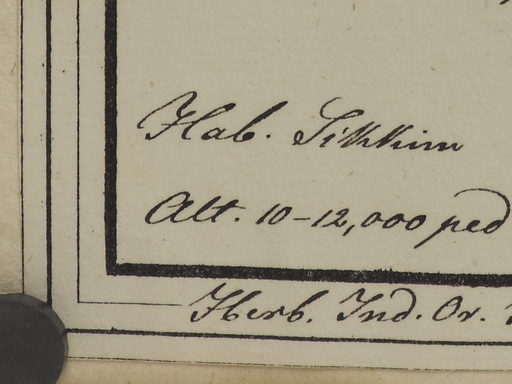 Hab. Sikkim
Alt. 10-12,000 ped
Herb. Ind. Or.